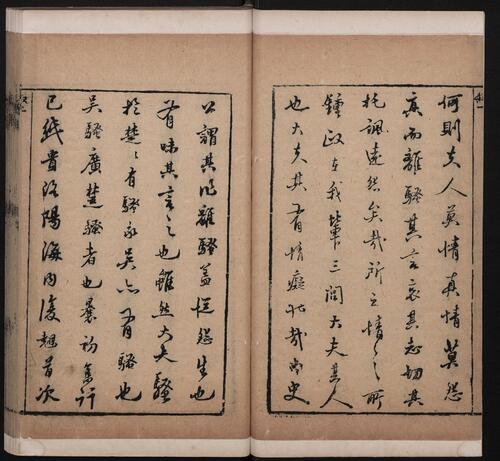 何則夫人莫情真情莫怨
哀而離騷其言哀其志切其
托諷遠然矣哉所云情〻之所
鍾政在我輩三閭大夫其人
也大夫其有情癡哉史
公謂其離騷蓋從怨生也
有味其言之也雖然大夫騷
於楚〻有騷吳亦有騷也
吳騷廣楚騷者也曩初集行
已紙貴洛陽海內復翹首次